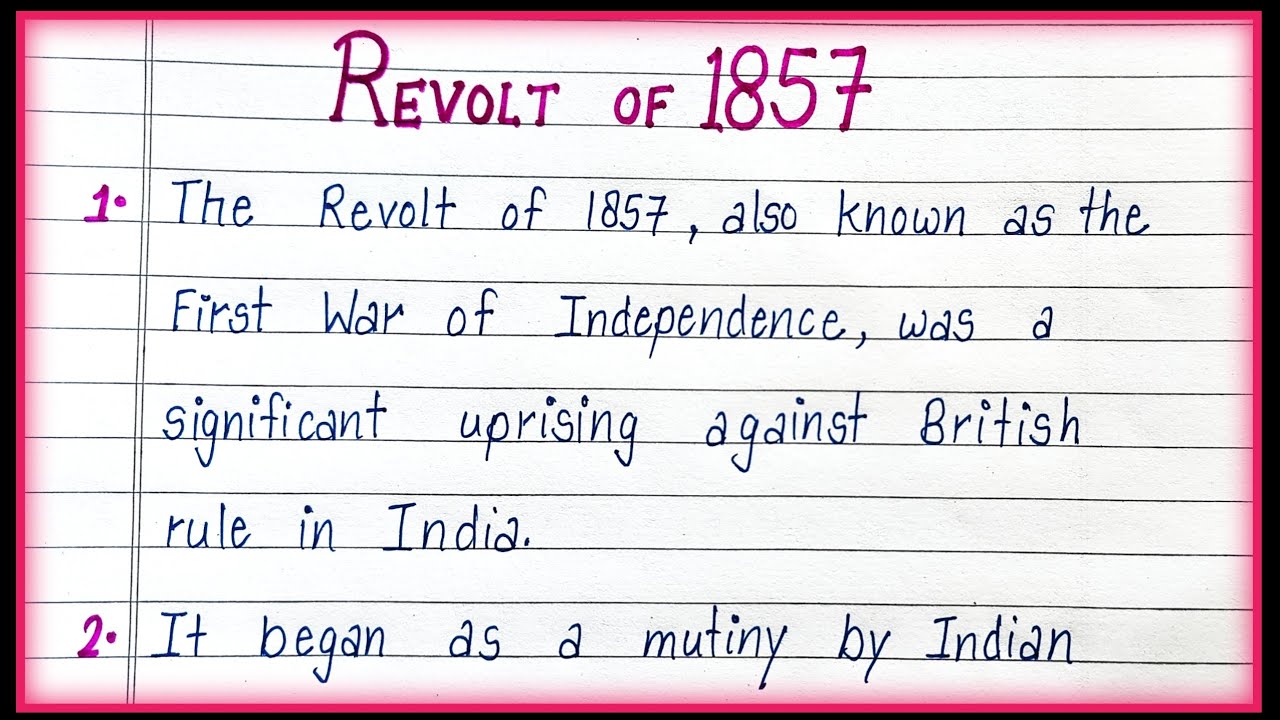 REVOLT OF 1857
1. The Revolt of 1857, also known as the
First War of Independence, was a
significant uprising against British
rule in India.
2. It began as a mutiny by Indian